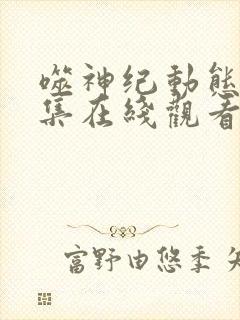 噬神纪動態
集在綫觀看
富野由悠季 矢